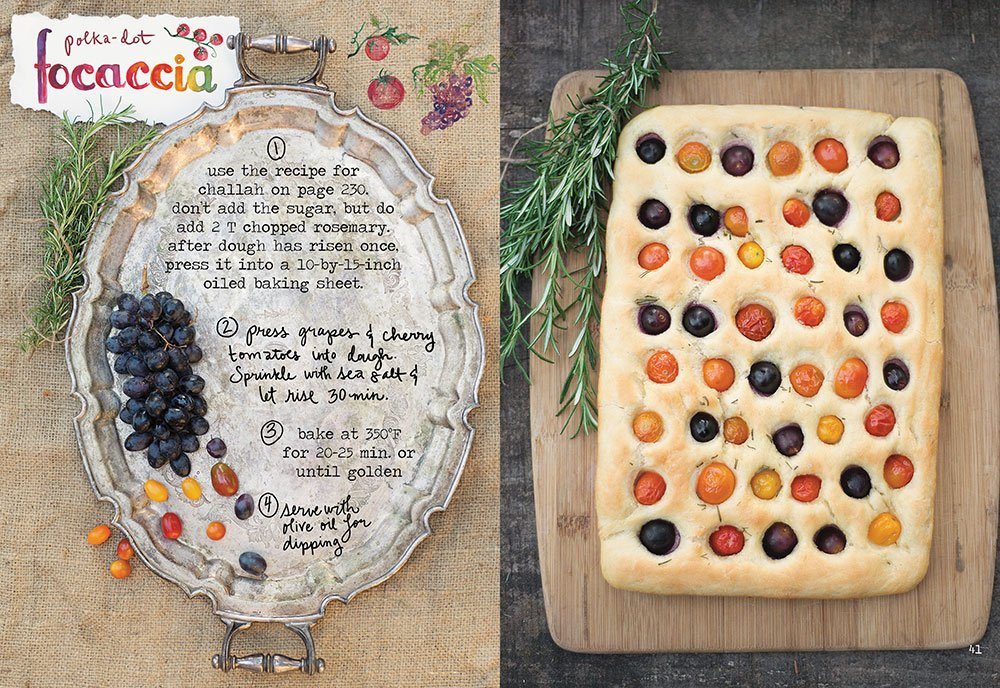 polka-dot
focaccia
1
use the recipe for
challah on page 230.
don't add the sugar, but do
add 2 T chopped rosemary.
after dough has risen once,
press it into a 10-by-15-inch
oiled baking sheet.
2 press grapes & cherry
tomatoes into dough.
Sprinkle with sea salt &
let rise 30 min.
3 bake at 350°F
for 20-25 min. or
until golden
4 serve with
olive oil for
dipping
41